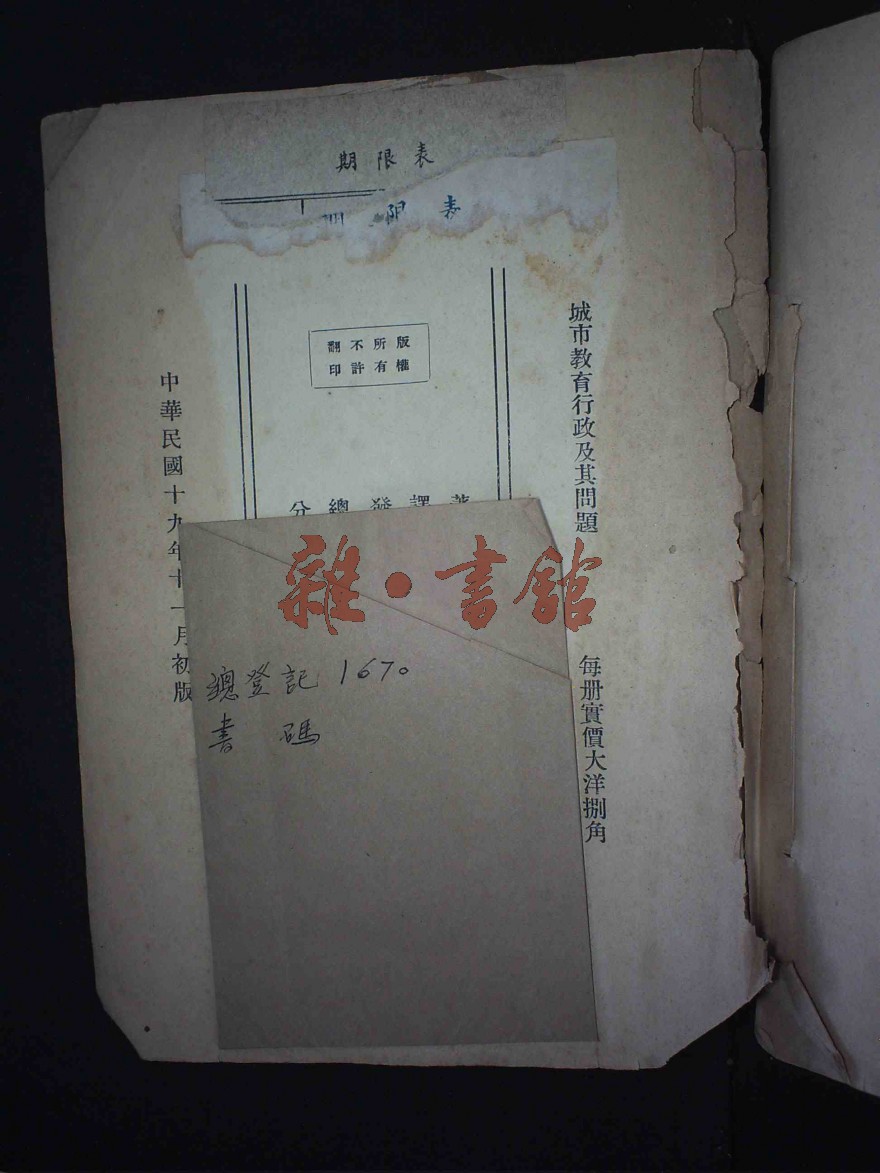 期限表
限表
城市教育行政及其問題
每册實價大洋捌角
版權所有
不許翻印
著
譯
發
總
分
中華民國十九年十一月初版
雜·書館
總登記 1670
書碼